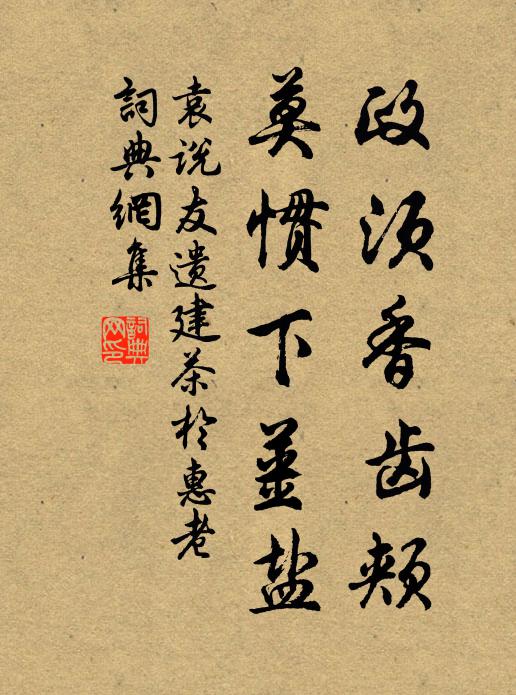 政须香齿颊
莫惯下姜盐
袁说友遗建茶於惠老
词典網集
詞典
网印